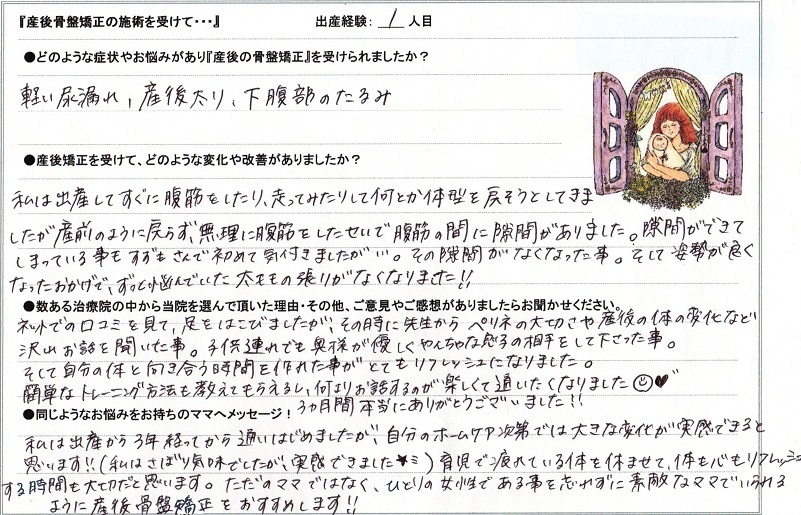 『産後骨盤矯正の施術を受けて・・・』 出産経験： 1 人目
●どのような症状やお悩みがあり『産後の骨盤矯正』を受けられましたか？
軽い尿漏れ，産後太り、下腹部のたるみ
●産後矯正を受けて、どのような変化や改善がありましたか？
私は出産してすぐに腹筋をしたり、走ってみたりして何とか体型を戻そうとしてきま
したが産前のように戻らず、無理に腹筋をしたせいで腹筋の間に隙間がありました。隙間ができて
しまっている事もすずもさんで初めて気付きましたが…。その隙間がなくなった事。そして姿勢が良く
なったおかげで、ずっと悩んでいた太モモの張りがなくなりました!!
●数ある治療院の中から当院を選んで頂いた理由・その他、ご意見やご感想がありましたらお聞かせください。
ネットでの口コミを見て，足をはこびましたが，その時に先生から ペリネの大切さや産後の体の変化など
沢山お話を聞いた事。子供連れでも奥様が優しくやんちゃな息子の相手をして下さった事。
そして自分の体と向き合う時間を作れた事がとてもリフレッシュになりました。
簡単なトレーニング方法も教えてもらえるし、何よりお話するのが楽しくて通いたくなりました
●同じようなお悩みをお持ちのママへメッセージ！ 3ヵ月間本当にありがとうございました!!
私は出産から3年経ってから通いはじめましたが、自分のホームケア次第では大きな変化が実感できると
思います!!(私はさぼり気味でしたが、実感できました★ミ) 育児で疲れている体を休ませて、体も心もリフレッシュ
する時間も大切だと思います。ただのママではなく、ひとりの女性である事を忘れずに素敵なママでいられる
ように産後骨盤矯正をおすすめします!!